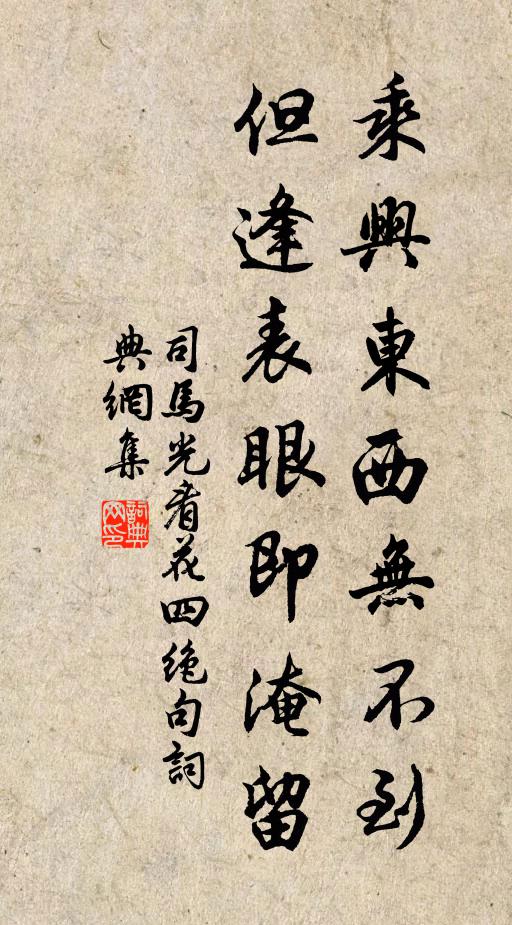 乘興東西無不到
但逢表眼即淹留
司馬光看花四绝句詞
典網集
詞典
网印